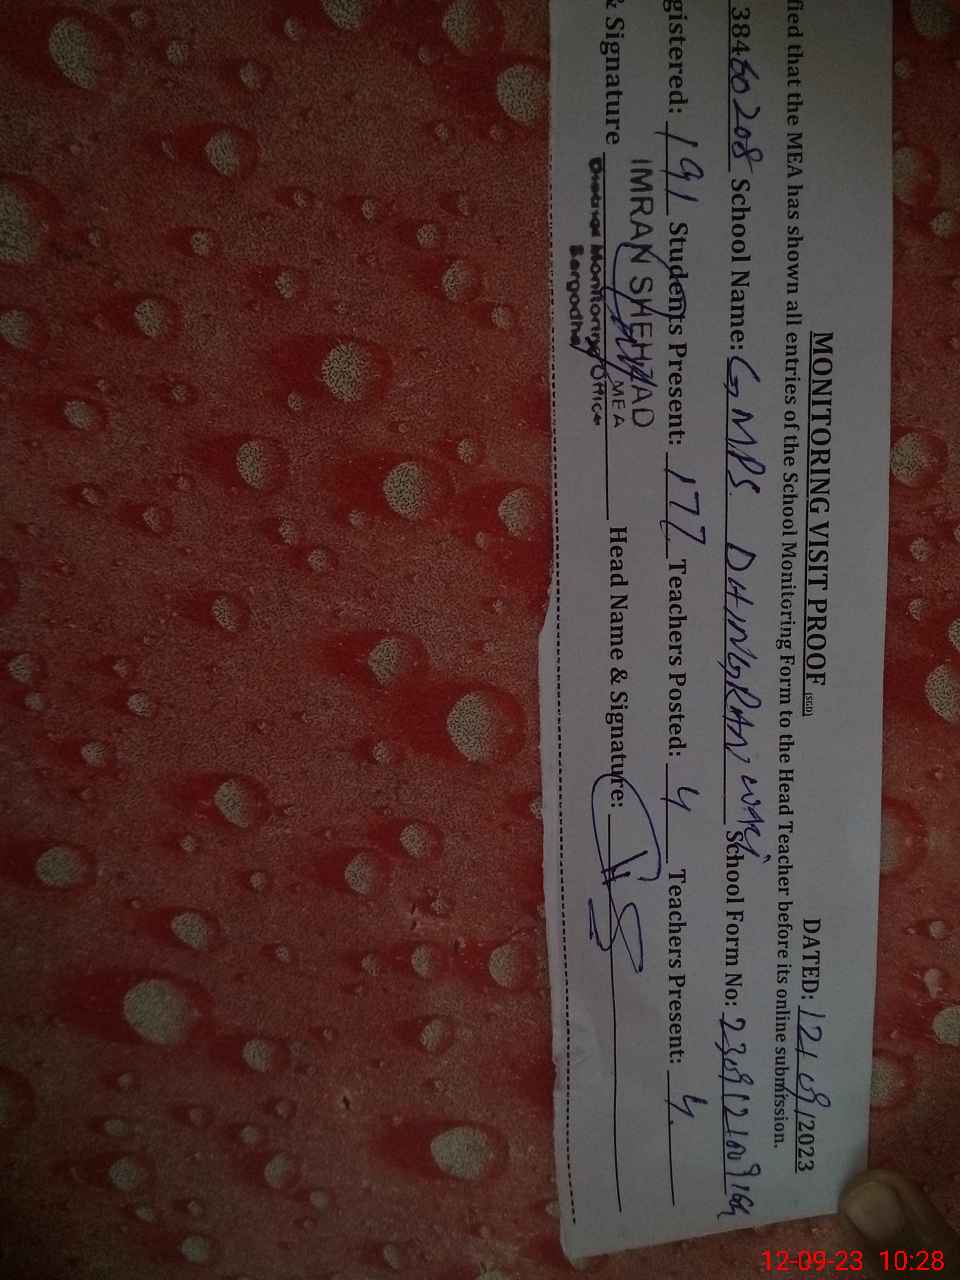 MONITORING VISIT PROOF (SGD) DATED: 12/09/2023
fied that the MEA has shown all entries of the School Monitoring Form to the Head Teacher before its online submission.
38460208 School Name: GMPS DHINGRANWALI School Form No:
gistered: 191 Students Present: 177 Teachers Posted: 4 Teachers Present: 4
& Signature IMRAN SHEHZAD Head Name & Signature:
MEA
District Monitoring Office
Sargodha
12-09-23 10:28